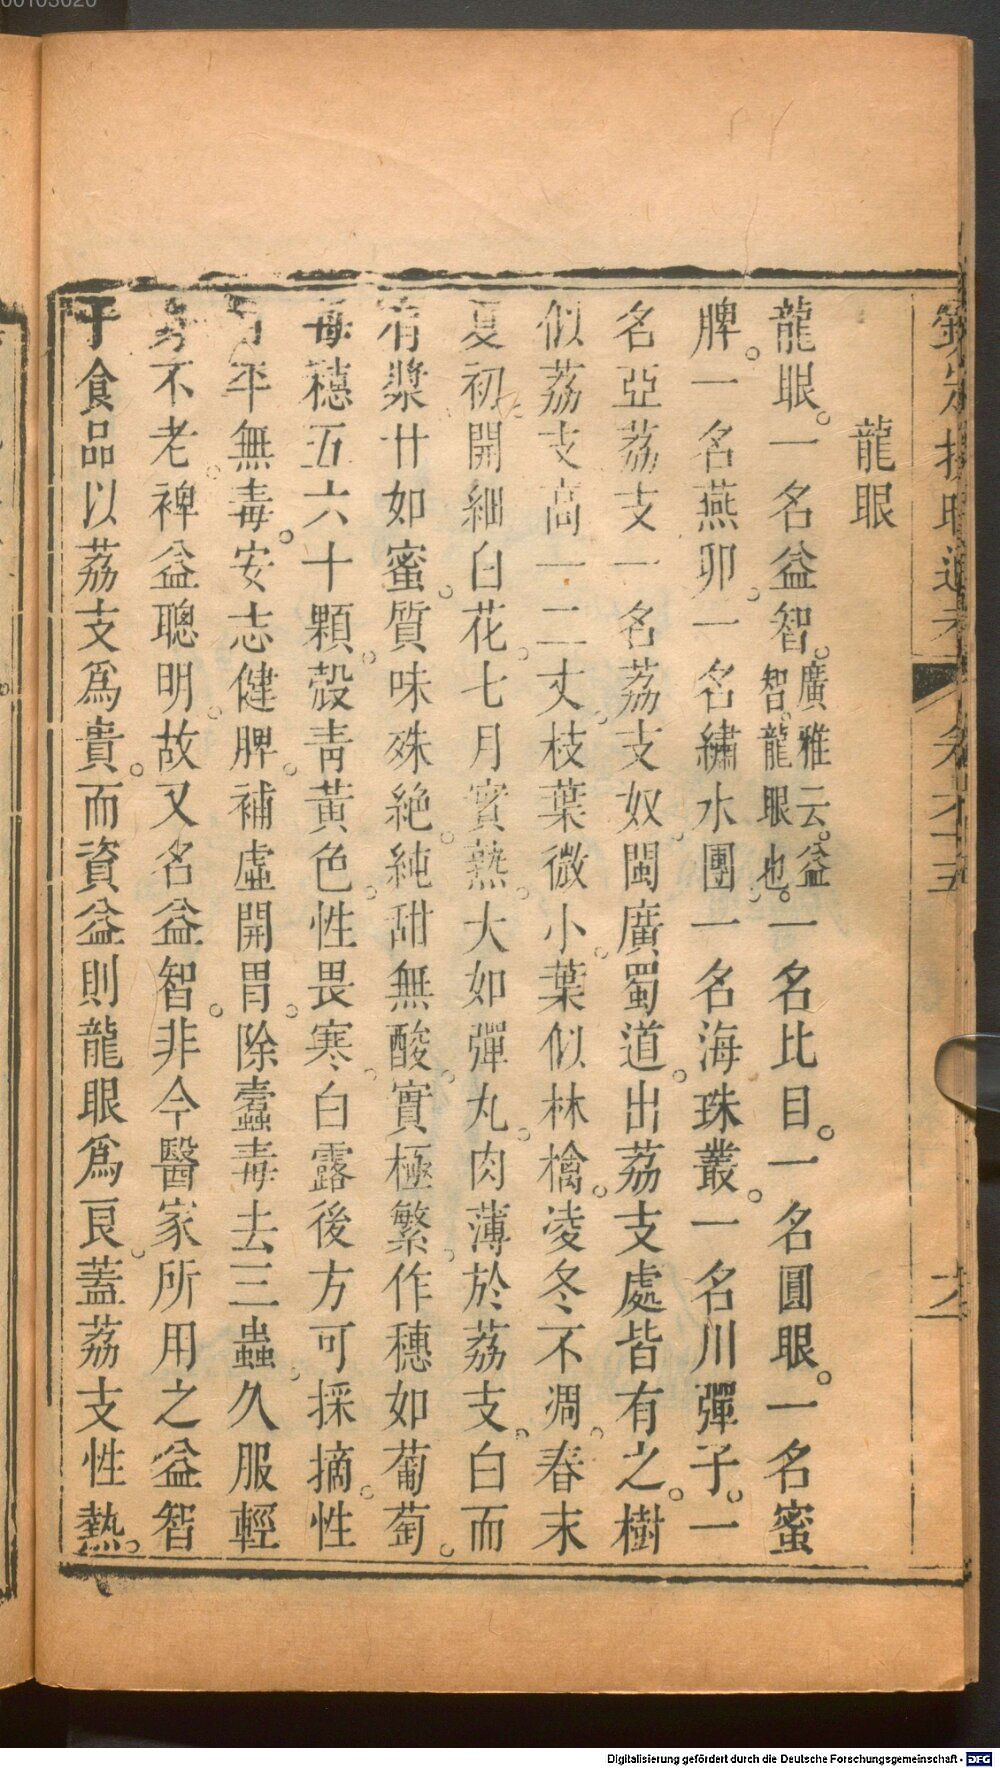 龍眼
龍眼。一名益智。廣雅云。益智。龍眼也。一名比目。一名圓眼。一名蜜
脾。一名燕卵。一名繡水團。一名海珠叢。一名川彈子。一
名亞荔支一名荔支奴。閩廣蜀道。出荔支處皆有之。樹
似荔支高一二丈。枝葉微小。葉似林檎。凌冬不凋。春末
夏初。開細白花。七月實熟。大如彈丸。肉薄於荔支。白而
有漿甘如蜜。質味殊絕。純甜無酸。實極繁。作穗如葡萄。
每穗五六十顆。殼青黃色。性畏寒。白露後方可採摘。性
平無毒。安志健脾。補虛開胃。除蠱毒去三蟲。久服輕
身不老。裨益聰明。故又名益智。非今醫家所用之益智
于食品以荔支爲貴。而資益則龍眼爲良。蓋荔支性熱。
Digitalisierung gefördert durch die Deutsche Forschungsgemeinschaft - DFG